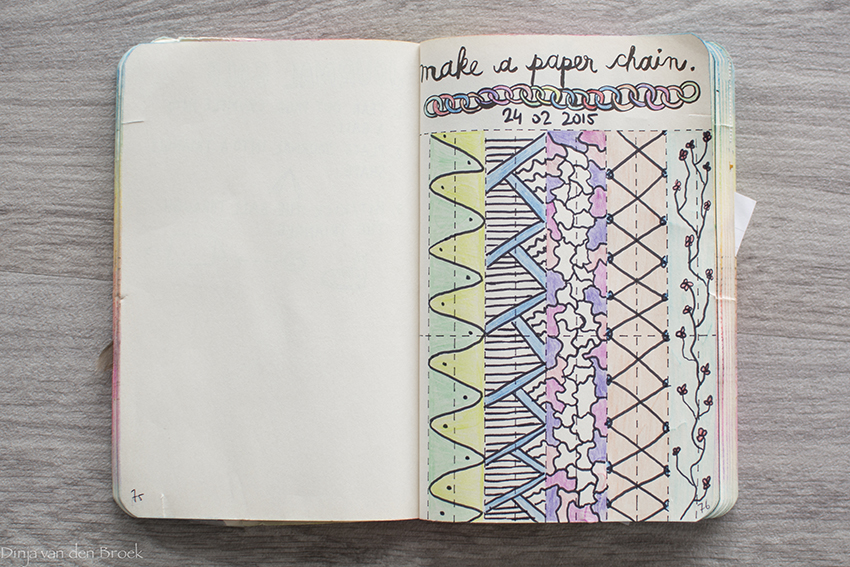 make a paper chain.
24 02 2015
75
76
Dinja van den Broek